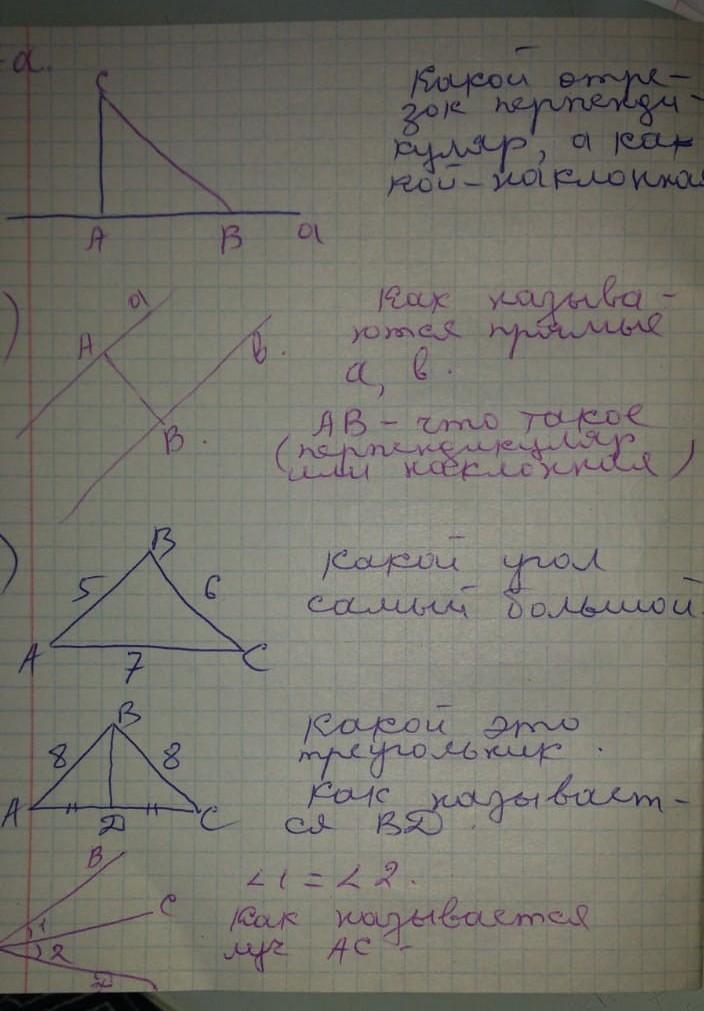 a.
C
Какой отре-
зок перпенди-
куляр, а как
кой-наклонная
A B a
)
Как называ-
ются прямые
a, в.
a
A
в.
B.
AB - что такое
(перпендикуляр
или наклонная)
)
B
5 6
A 7 C
Какой угол
самый большой.
B
8 8
A D C
Какой это
треугольник.
Как называет-
ся BD.
B
C
1
2
D
∠1 = ∠2.
Как называется
луч AC -